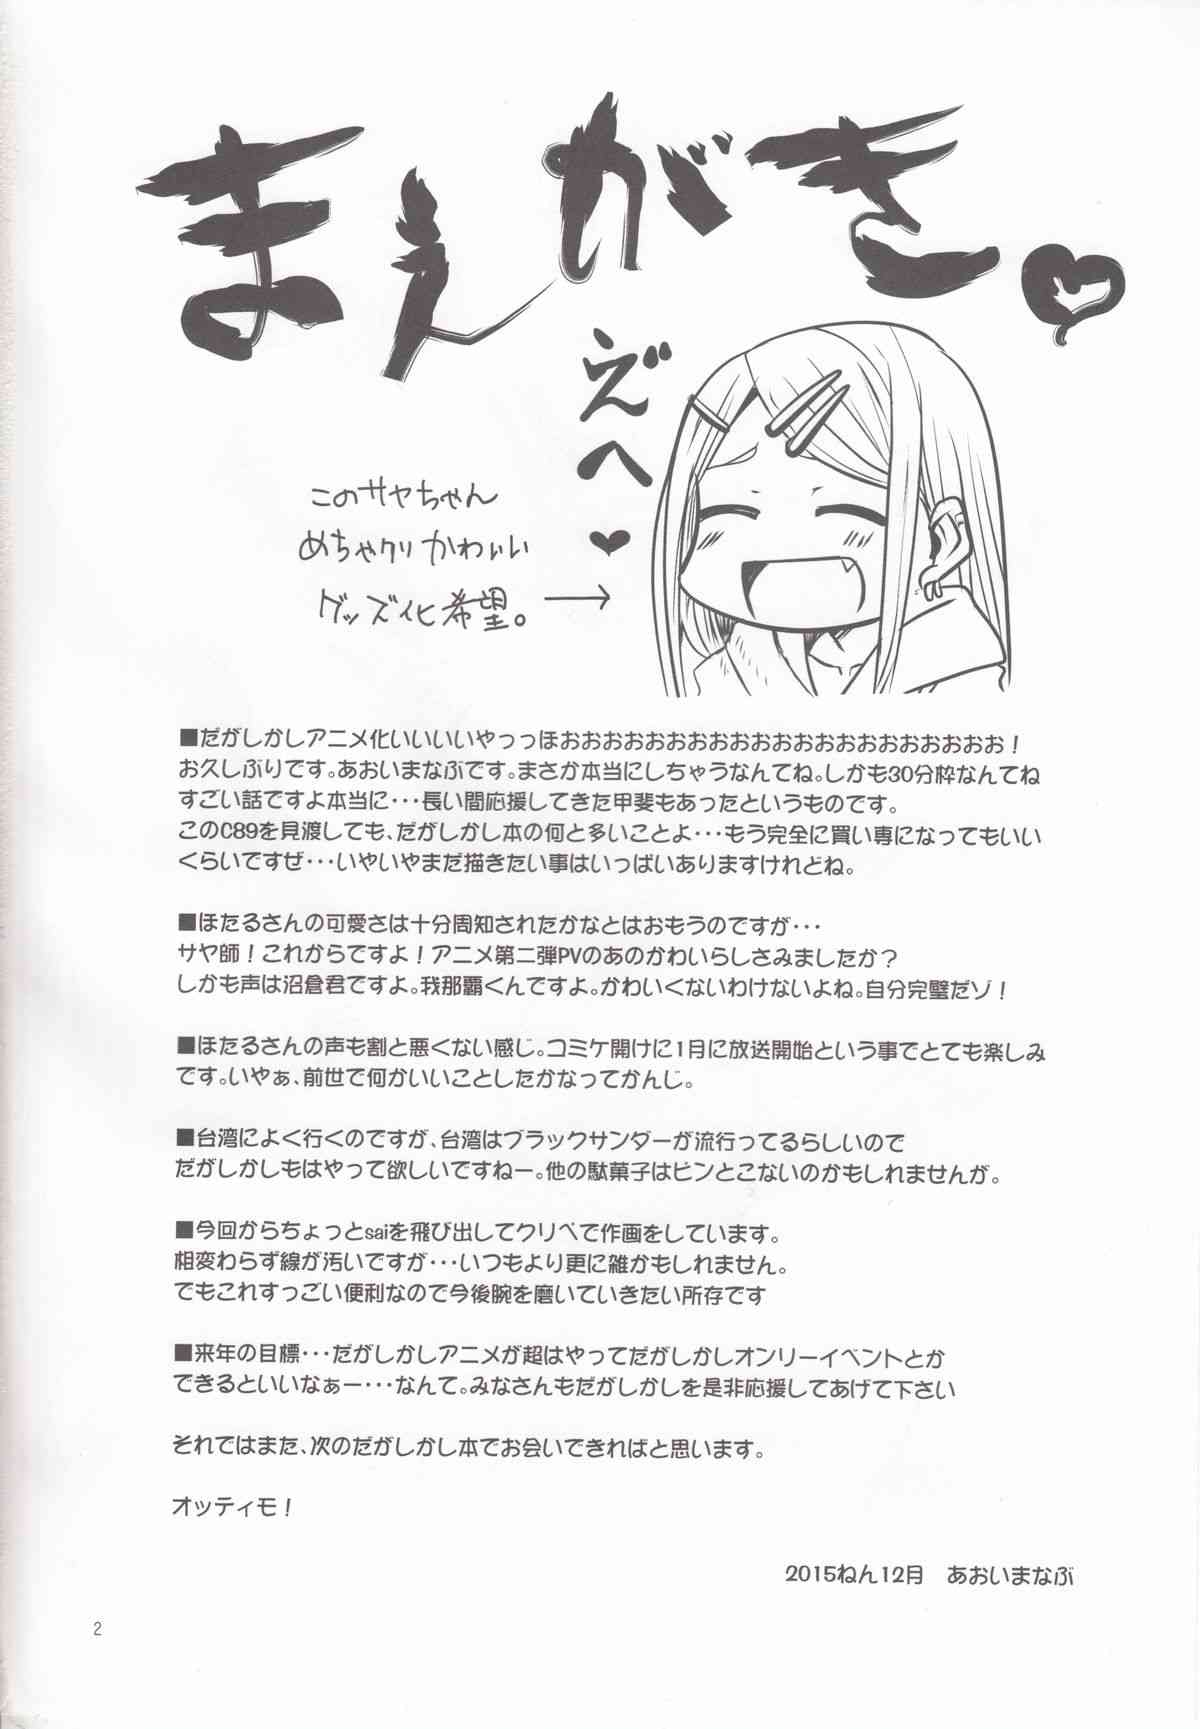 まえがき
えへ
このサヤちゃん
めちゃクリかわいい
グッズ化希望。
■だがしかしアニメ化いいいいやっっほおおおおおおおおおおおおおおおおおおおおお!
お久しぶりです。あおいまなぶです。まさか本当にしちゃうなんてね。しかも30分枠なんてね
すごい話ですよ本当に・・・長い間応援してきた甲斐もあったというものです。
このC89を見渡しても、だがしかし本の何と多いことよ・・・もう完全に買い専になってもいい
くらいですぜ・・・いやいやまだ描きたい事はいっぱいありますけれどね。
■ほたるさんの可愛さは十分周知されたかなとはおもうのですが・・・
サヤ師!これからですよ!アニメ第二弾PVのあのかわいらしさみましたか?
しかも声は沼倉君ですよ。我那覇くんですよ。かわいくないわけないよね。自分完璧だゾ!
■ほたるさんの声も割と悪くない感じ。コミケ開けに1月に放送開始という事でとても楽しみ
です。いやぁ、前世で何かいいことしたかなってかんじ。
■台湾によく行くのですが、台湾はブラックサンダーが流行ってるらしいので
だがしかしもはやって欲しいですねー。他の駄菓子はピンとこないのかもしれませんが。
■今回からちょっとsaiを飛び出してクリペで作画をしています。
相変わらず線が汚いですが・・・いつもより更に雑かもしれません。
でもこれすっごい便利なので今後腕を磨いていきたい所存です
■来年の目標・・・だがしかしアニメが超はやってだがしかしオンリーイベントとか
できるといいなぁー・・・なんて。みなさんもだがしかしを是非応援してあげて下さい
それではまた、次のだがしかし本でお会いできればと思います。
オッティモ!
2015ねん12月 あおいまなぶ
2